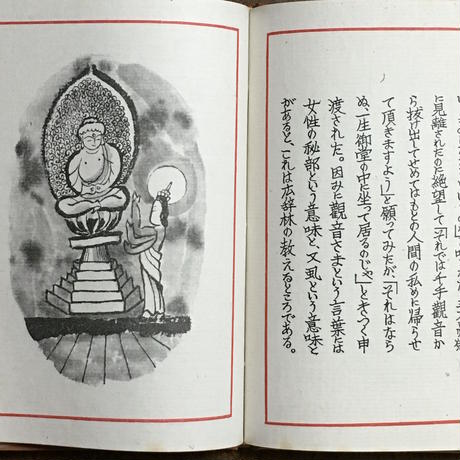 に見離されたのに絶望して「それでは千手觀音か
ら抜け出してせめてはもとの人間の私めに帰らせ
て頂きますよう」と願ってみたが、「それはなら
ぬ、一生御堂の中に坐って居るのじゃ」ときつく申
渡された。因みに觀音さまという言葉には
女性の秘部という意味と、又虱という意味と
があると、これは広辞林の教えるところである。